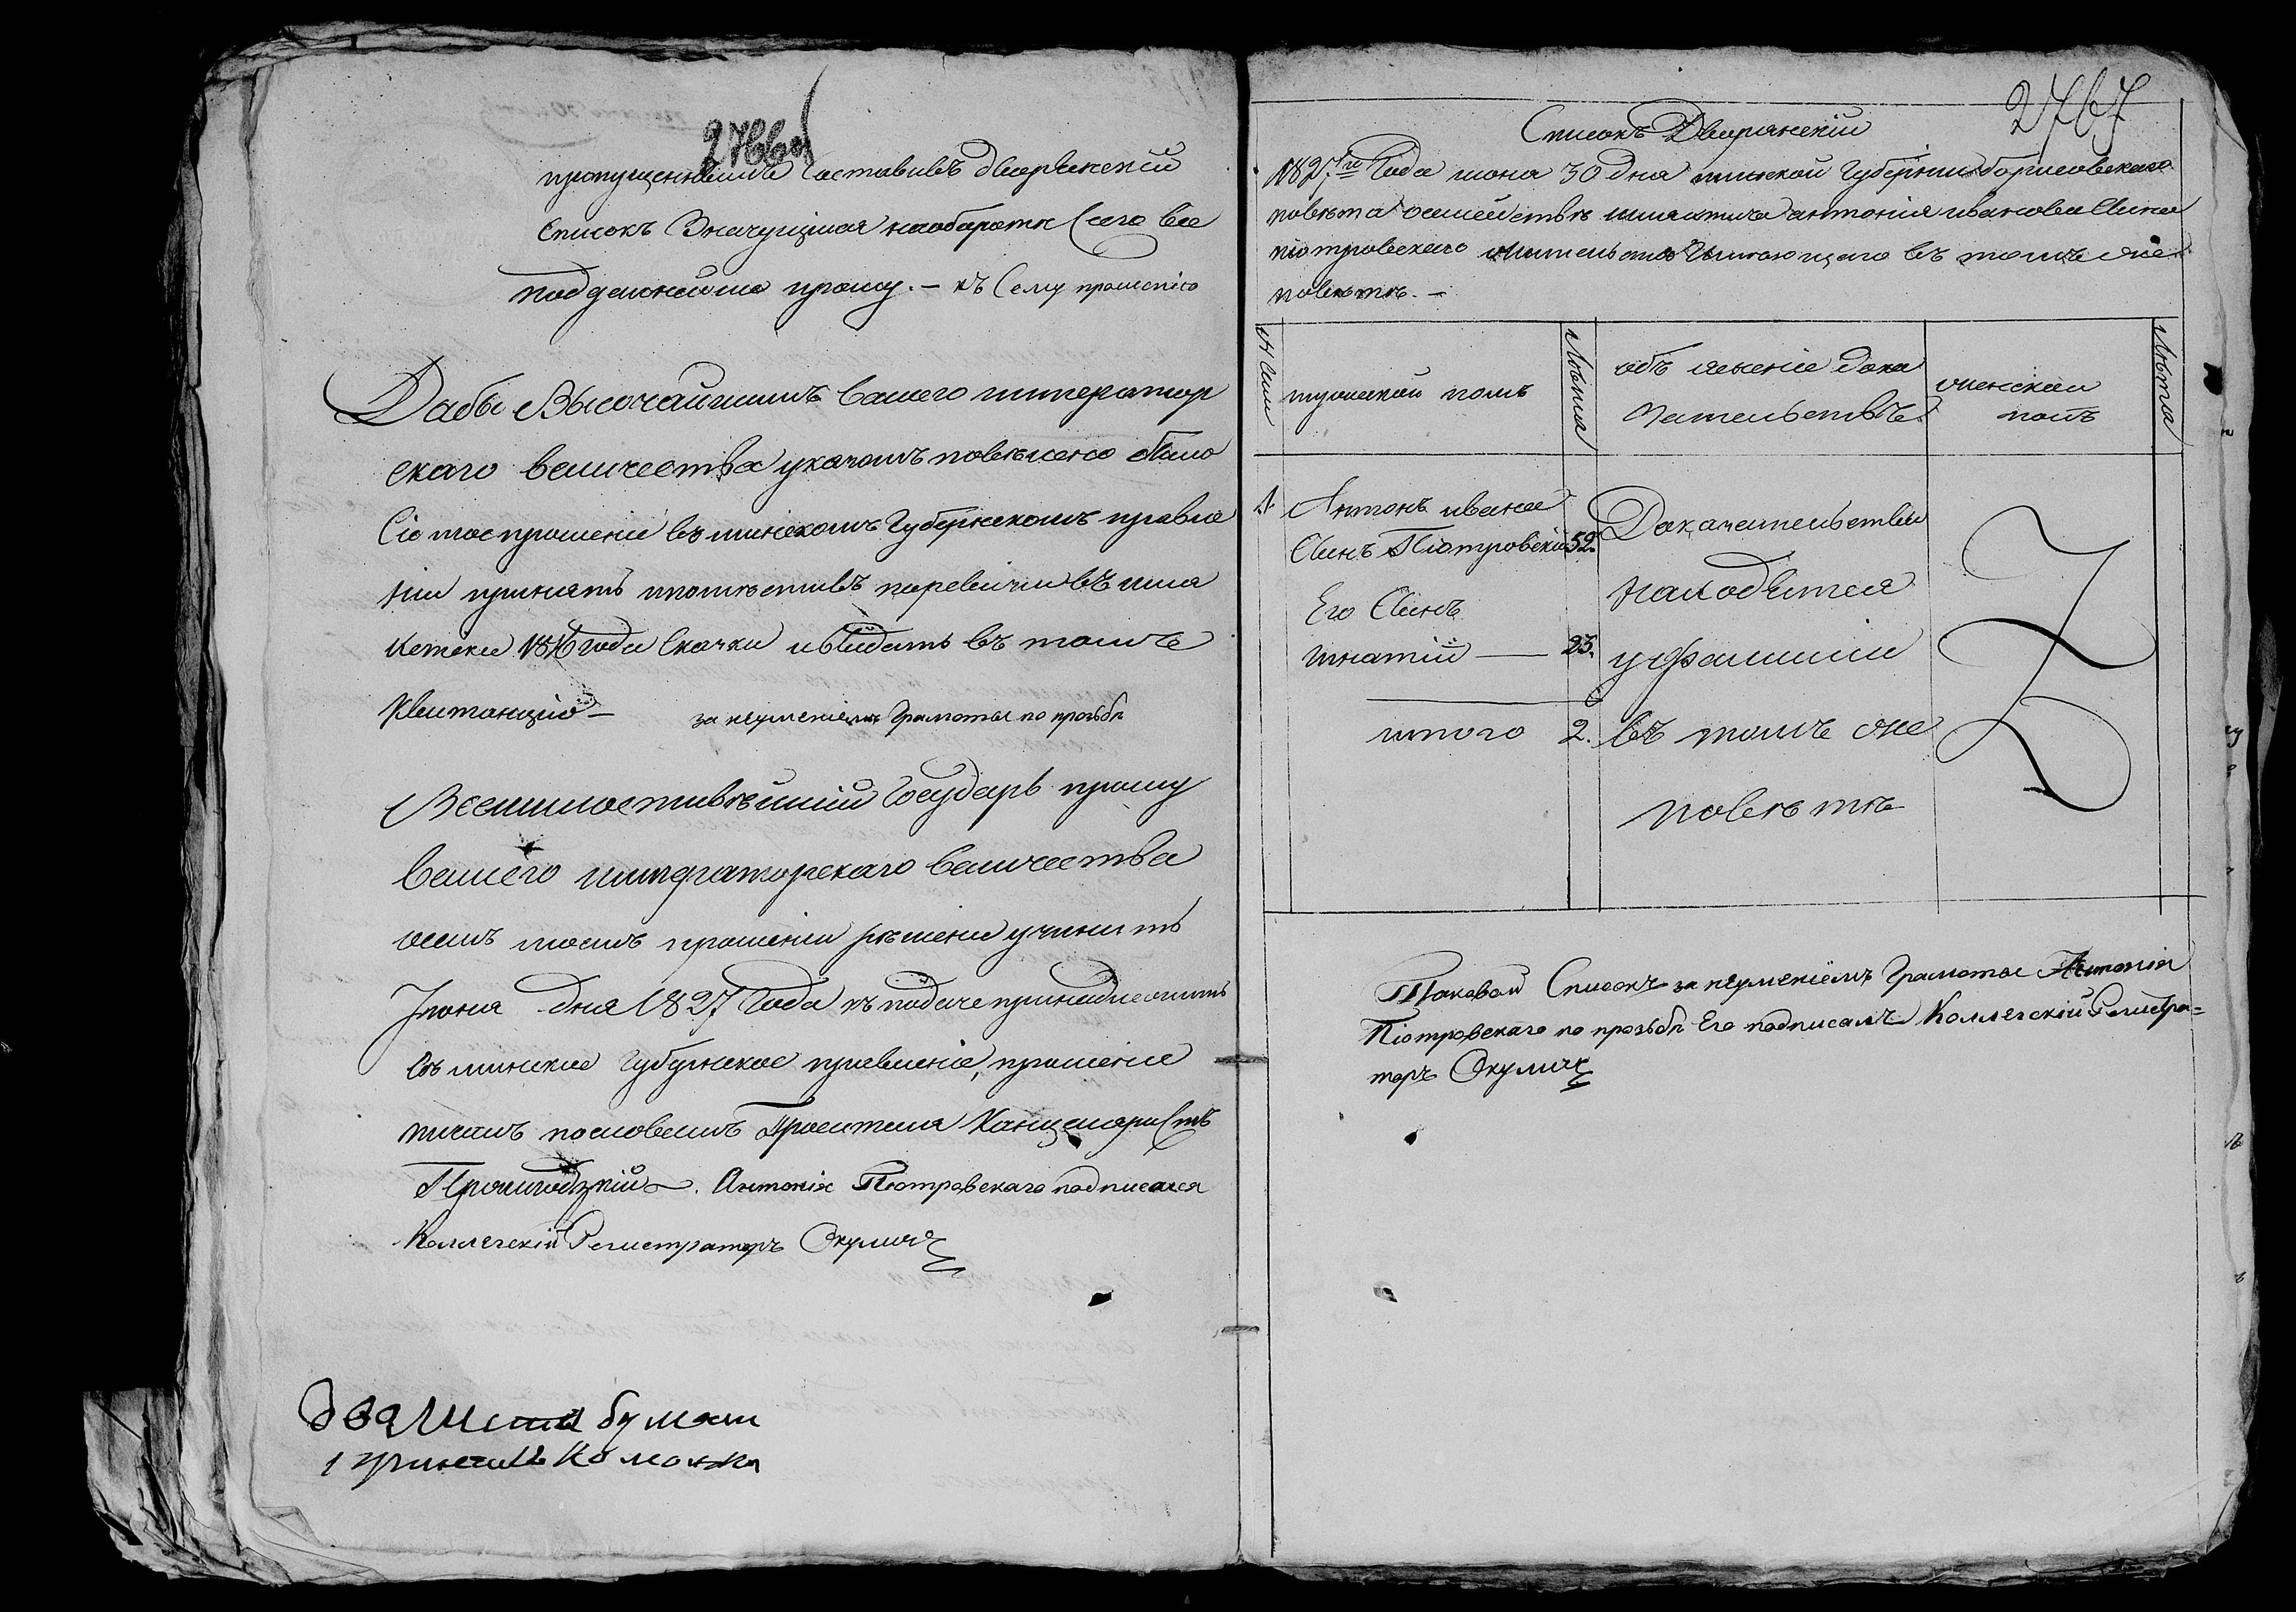 2766об
пропущеннымъ составивъ дворянскій
списокъ Значущійся наоборотѣ Сего все
подданнѣише прошу. — къ Сему прошенію
Дабы Высочайшимъ вашего император
скаго величества указомъ повелѣно было
Сіе мое прошеніе въ минскомъ Губернскомъ правле
ніи принять
1816 года Скачки и выдать въ томъ
Квитанцію — за неуменіемъ Грамоты по прозьбѣ
Всемилостивѣйшій Государь прошу
вашего императорскаго величества
осемъ моемъ прошеніи рѣшеніе учинить
Іюня дня 1827 Года къ подаче принадлежитъ
въ минское Губернское правленіе, прошеніе
писалъ пословамъ Просителя Канцеляристъ
Антонія Піотровскаго подписался
Коллегскій Регистраторъ Окуличъ
два листа бумаги
2767
Списокъ Дворянскій
1827го Года июня 30 дня минской Губерніи борисовскаго
повѣта осемействѣ шляхтича антонія иванова Сына
піотровскаго жительство Имеющаго въ томъ же
повѣтѣ. —
мужской полъ
Лѣта
объ явленіе дока
зательствъ
женской
полъ
Лѣта
1. Антонъ ивана
Сынъ Піотровскій 52.
Его Сынъ
игнатій — 23.
итого 2.
Доказательствы
находятся
уфамиліи
въ томъ же
повѣтѣ
Таковой Списокъ за неуменіемъ Грамоты Антонія
Піотровскаго по прозьбѣ Его подписалъ Коллегскій Регистра=
торъ Окуличъ